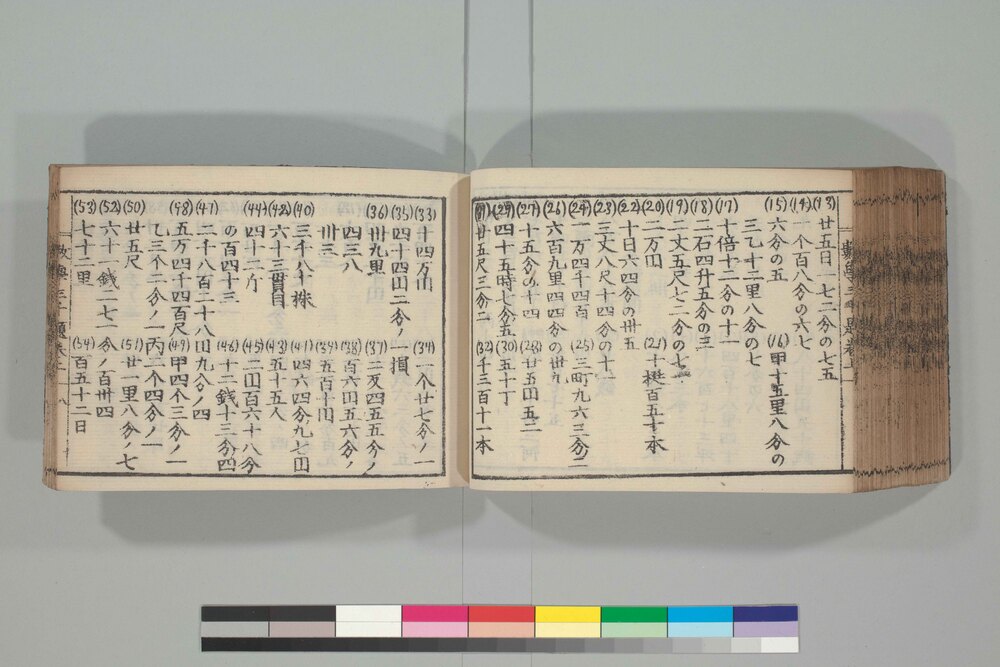 (13) 廿五日 七二分の七五
(14) 一个百八分の六七
(15) 六分の五 (16) 甲十五里八分の
三 乙十二里八分の七
(17) 十倍十二分の十一
(18) 二石四升五分の三
(19) 二丈五尺七二分の七
(20) 二万円 (21) 十梃百五十本
(22) 十日六四分の卅五
(23) 三丈八尺十四分の十一
(24) 一万四千四百 (25) 三町九六三分二
(26) 六百九里四四分の卅九
(27) 十五分の十四 (28) 廿五円五二
(29) 四十五時七分五 (30) 五十丁
(31) 廿五尺三分二 (32) 千三百十一本
(33) 十四万円 (34) 一个廿七分ノ一
(35) 四十四円二分ノ一損
(36) 卅九里 (37) 二反四五五分ノ
四三八 (38) 百六円五六分ノ
卅三 (39) 五百十円
(40) 三千八十株 (41) 四六四分九七円
(42) 六十三貫目 (43) 五十五人
(44) 四十二斤 (45) 二円百六十八分
の百四十三 (46) 十二銭十三分四
(47) 二千八百二十八円九分ノ四
(48) 五万四千四百尺 (49) 甲四个三分ノ一
乙三个二分ノ一丙二个四分ノ一
(50) 廿五尺 (51) 廿一里八分ノ七
(52) 六十一銭二七一分ノ百卅四
(53) 七十二里 (54) 百五十二日
八